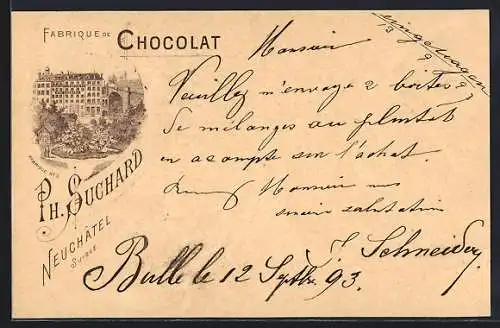 FABRIQUE DE CHOCOLAT
FABRIQUE No 2
PH. SUCHARD
NEUCHÂTEL
SUISSE
eingetragen
13 9 93
Monsieur
Veuillez m'envoyer 2 boîtes
de mélanges au plus tôt
en acompte sur l'achat.
Monsieur mes
salutation
J. Schneider
Bulle le 12 Septbr. 93.